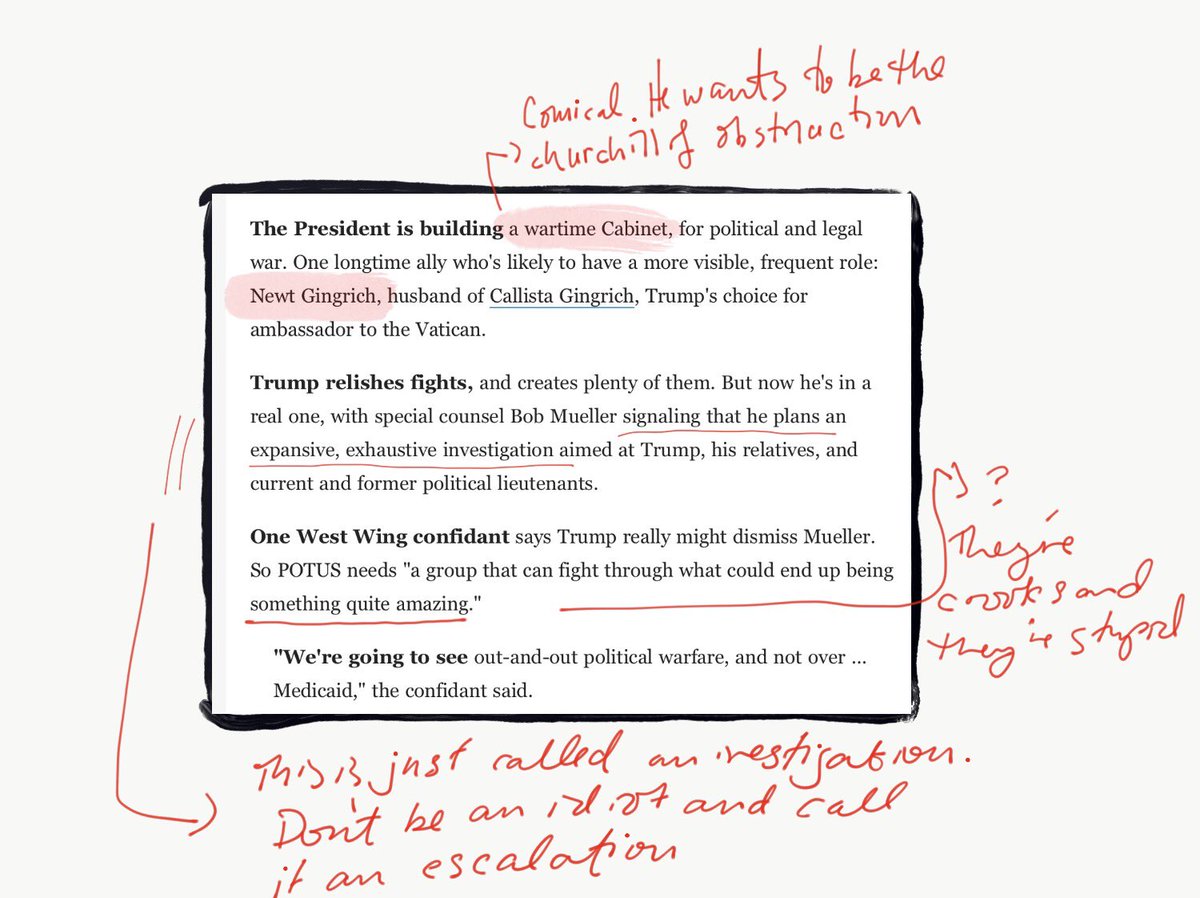 Comical. He wants to be the
churchill of obstruction
The President is building a wartime Cabinet, for political and legal
war. One longtime ally who's likely to have a more visible, frequent role:
Newt Gingrich, husband of Callista Gingrich, Trump's choice for
ambassador to the Vatican.
Trump relishes fights, and creates plenty of them. But now he's in a
real one, with special counsel Bob Mueller signaling that he plans an
expansive, exhaustive investigation aimed at Trump, his relatives, and
current and former political lieutenants.
One West Wing confidant says Trump really might dismiss Mueller.
So POTUS needs "a group that can fight through what could end up being
something quite amazing."
"We're going to see out-and-out political warfare, and not over ...
Medicaid," the confidant said.
?
They're
crooks and
they're stupid
This is just called an investigation.
Don't be an idiot and call
it an escalation